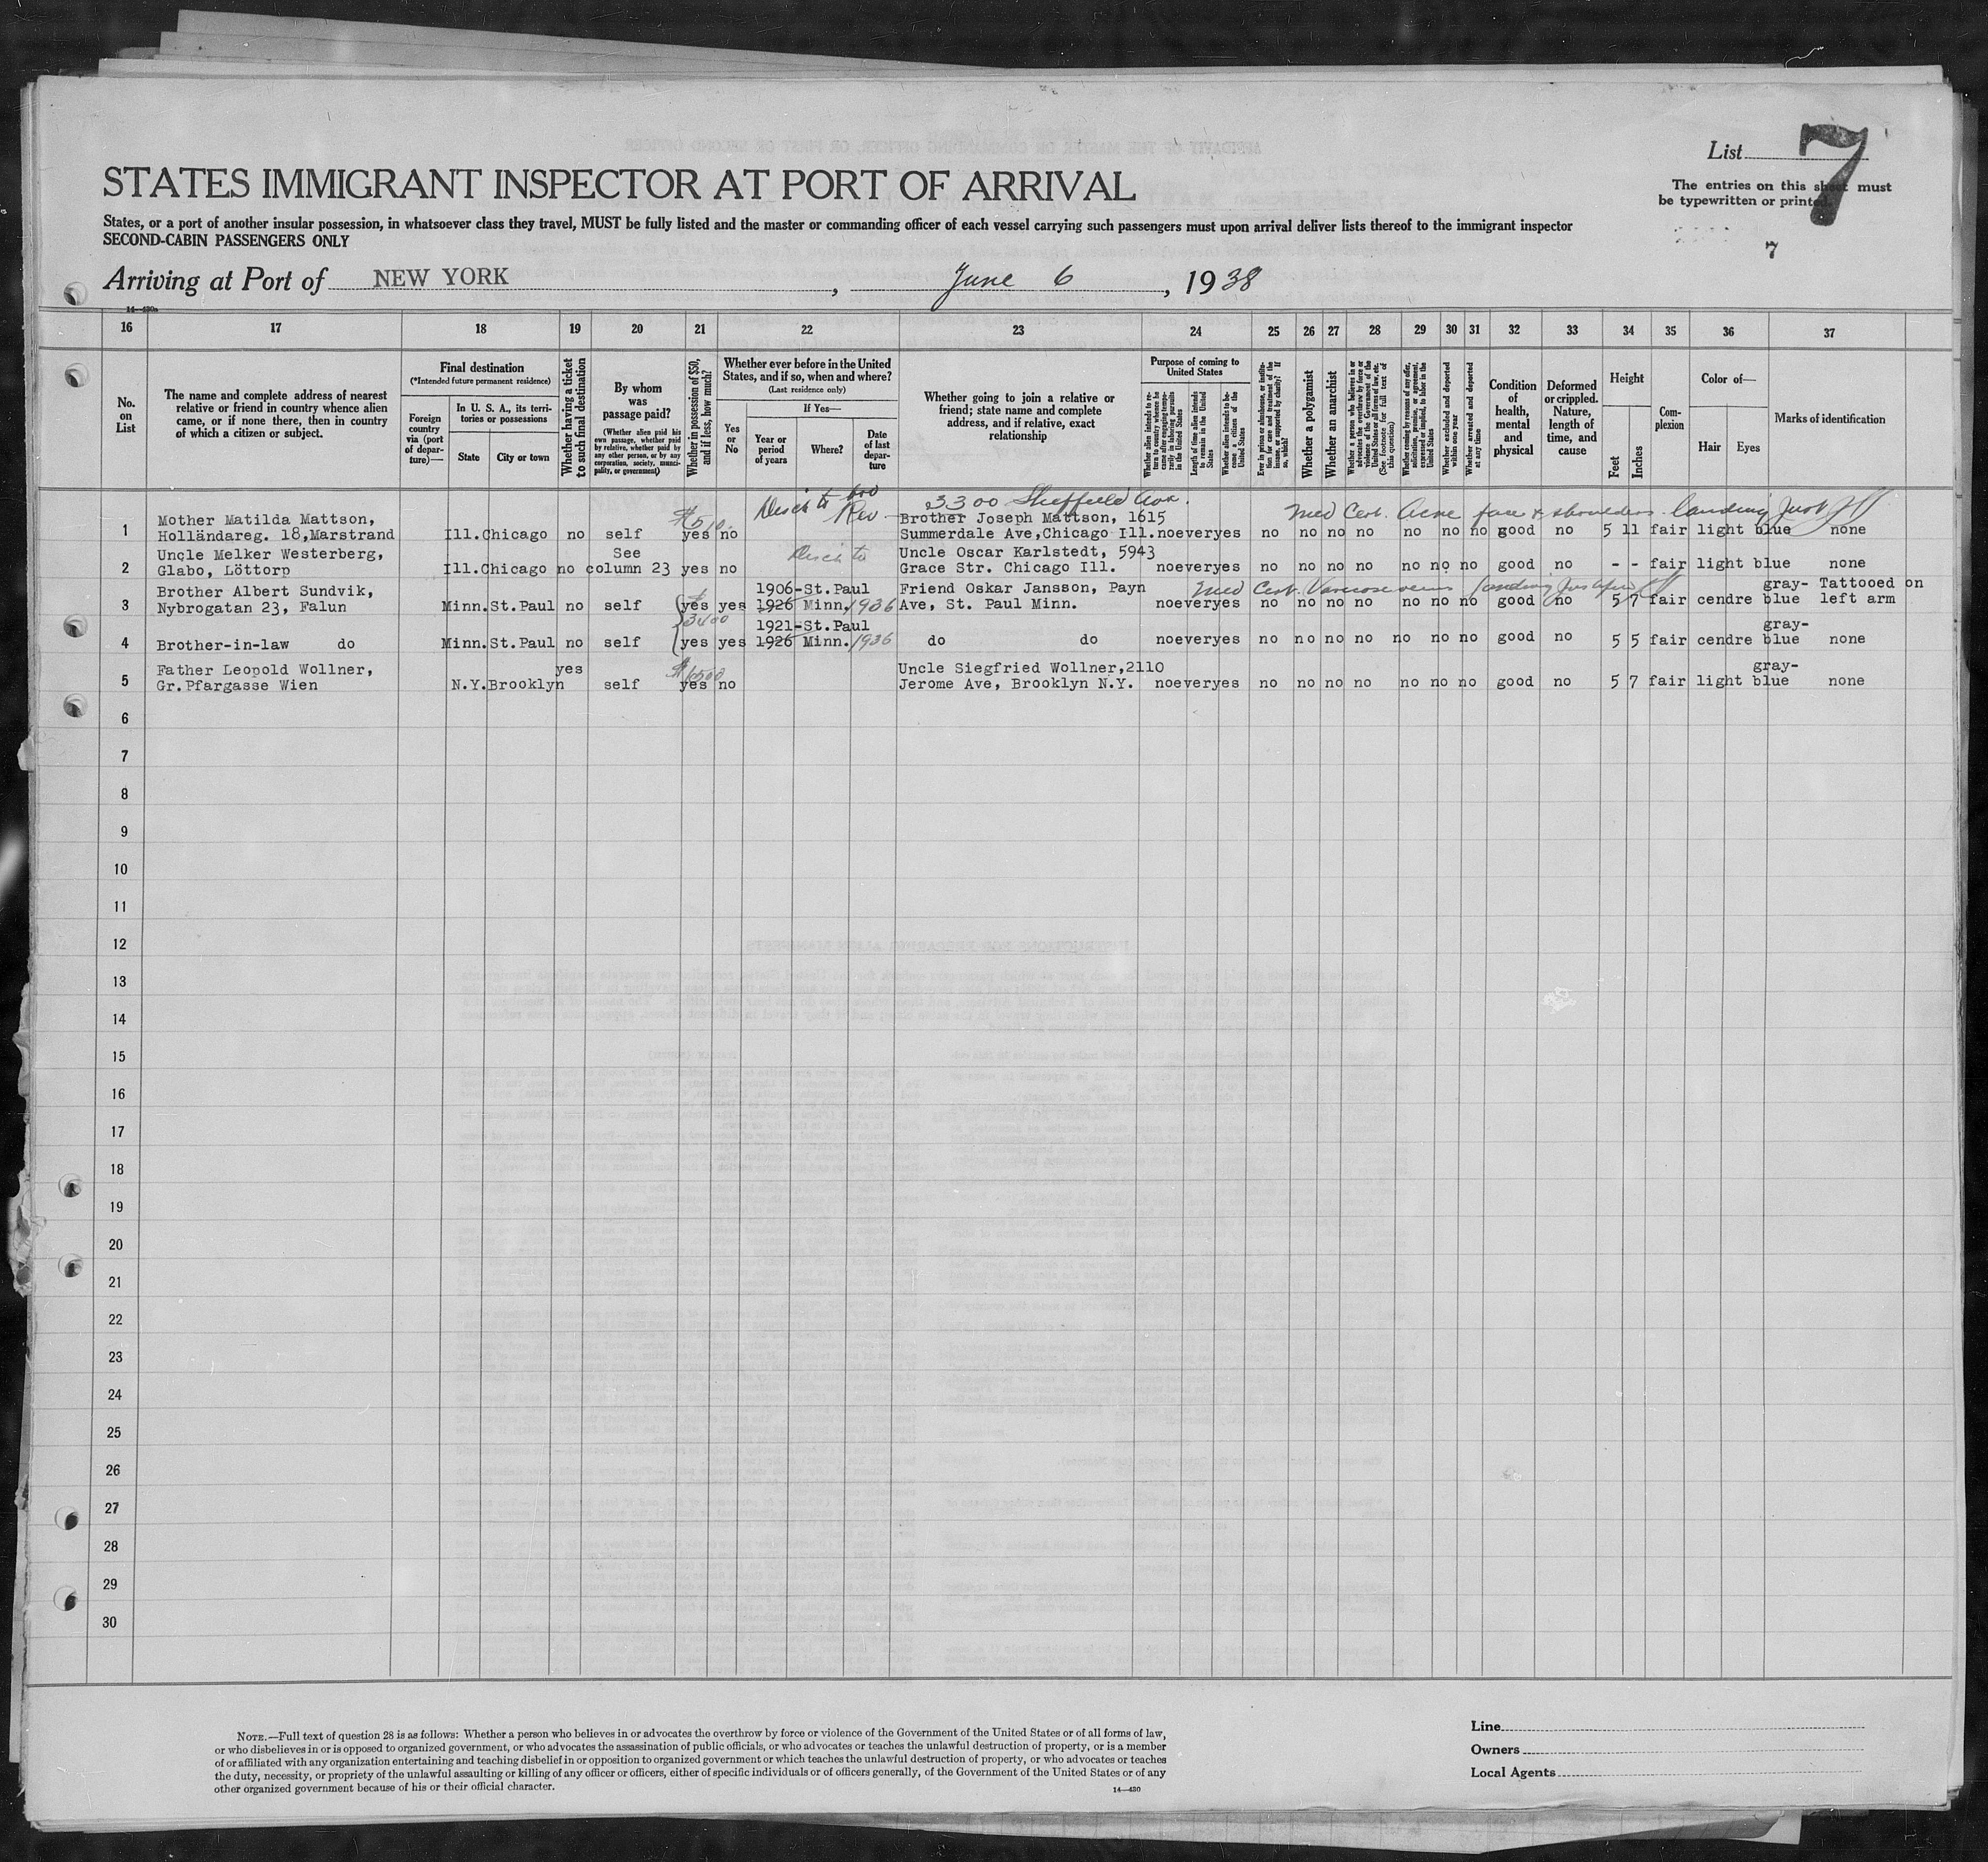 List 7
The entries on this sheet must
be typewritten or printed.
7
STATES IMMIGRANT INSPECTOR AT PORT OF ARRIVAL
States, or a port of another insular possession, in whatsoever class they travel, MUST be fully listed and the master or commanding officer of each vessel carrying such passengers must upon arrival deliver lists thereof to the immigrant inspector
SECOND-CABIN PASSENGERS ONLY
Arriving at Port of NEW YORK, June 6, 1938
14—430a
16 17 18 19 20 21 22 23 24 25 26 27 28 29 30 31 32 33 34 35 36 37
No. on List
The name and complete address of nearest
relative or friend in country whence alien
came, or if none there, then in country
of which a citizen or subject.
Final destination
(*Intended future permanent residence)
Foreign
country
via (port
of depar-
ture)—
In U. S. A., its terri-
tories or possessions
State City or town
Whether having a ticket
to such final destination
By whom
was
passage paid?
(Whether alien paid his
own passage, whether paid
by relative, whether paid by
any other person, or by any
corporation, society, munici-
pality, or government)
Whether in possession of $50,
and if less, how much?
Whether ever before in the United
States, and if so, when and where?
(Last residence only)
Yes
or
No
If Yes—
Year or
period
of years
Where?
Date
of last
depar-
ture
Whether going to join a relative or
friend; state name and complete
address, and if relative, exact
relationship
Purpose of coming to
United States
Whether alien intends to re-
turn to country whence he
came after engaging tempo-
rarily in laboring pursuits
in the United States
Length of time alien intends
to remain in the United
States
Whether alien intends to be-
come a citizen of the
United States
Ever in prison or almshouse, or institu-
tion for care and treatment of the
insane, or supported by charity? If
so, which?
Whether a polygamist
Whether an anarchist
Whether a person who believes in or
advocates the overthrow by force or
violence of the Government of the
United States or all forms of law, etc.
(See footnote for full text of
this question)
Whether coming by reasons of any offer,
solicitation, promise, or agreement,
expressed or implied, to labor in the
United States
Whether excluded and deported
within one year
Whether arrested and deported
at any time
Condition
of
health,
mental
and
physical
Deformed
or crippled.
Nature,
length of
time, and
cause
Height
Feet Inches
Com-
plexion
Color of—
Hair Eyes
Marks of identification
3300 Sheffield Ave.
Med Cert. Acne face & shoulders landing
1 Mother Matilda Mattson,
Holländareg. 18,Marstrand Ill. Chicago no self yes no
Brother Joseph Mattson, 1615
Summerdale Ave,Chicago Ill. no ever yes no no no no no no no good no 5 11 fair light blue none
2 Uncle Melker Westerberg,
Glabo, Löttorp Ill. Chicago no See column 23 yes no
Uncle Oscar Karlstedt, 5943
Grace Str. Chicago Ill. no ever yes no no no no no no no good no - - fair light blue none
3 Brother Albert Sundvik,
Nybrogatan 23, Falun Minn. St. Paul no self yes yes 1906-1926 St.Paul Minn. 1936
Friend Oskar Jansson, Payn
Ave, St. Paul Minn. no ever yes no no no no no no no good no 5 7 fair cendre gray-blue Tattooed on left arm
Med Cert. Varicose veins landing
4 Brother-in-law do Minn. St. Paul no self yes yes 1921-1926 St.Paul Minn. 1936
do do no ever yes no no no no no no no good no 5 5 fair cendre gray-blue none
5 Father Leopold Wollner,
Gr.Pfargasse Wien N.Y. Brooklyn yes self yes no
Uncle Siegfried Wollner,2110
Jerome Ave, Brooklyn N.Y. no ever yes no no no no no no no good no 5 7 fair light gray-blue none
6
7
8
9
10
11
12
13
14
15
16
17
18
19
20
21
22
23
24
25
26
27
28
29
30
NOTE.—Full text of question 28 is as follows: Whether a person who believes in or advocates the overthrow by force or violence of the Government of the United States or of all forms of law,
or who disbelieves in or is opposed to organized government, or who advocates the assassination of public officials, or who advocates or teaches the unlawful destruction of property, or is a member
of or affiliated with any organization entertaining and teaching disbelief in or opposition to organized government or which teaches the unlawful destruction of property, or who advocates or teaches
the duty, necessity, or propriety of the unlawful assaulting or killing of any officer or officers, either of specific individuals or of officers generally, of the Government of the United States or of any
other organized government because of his or their official character.
14—430
Line
Owners
Local Agents